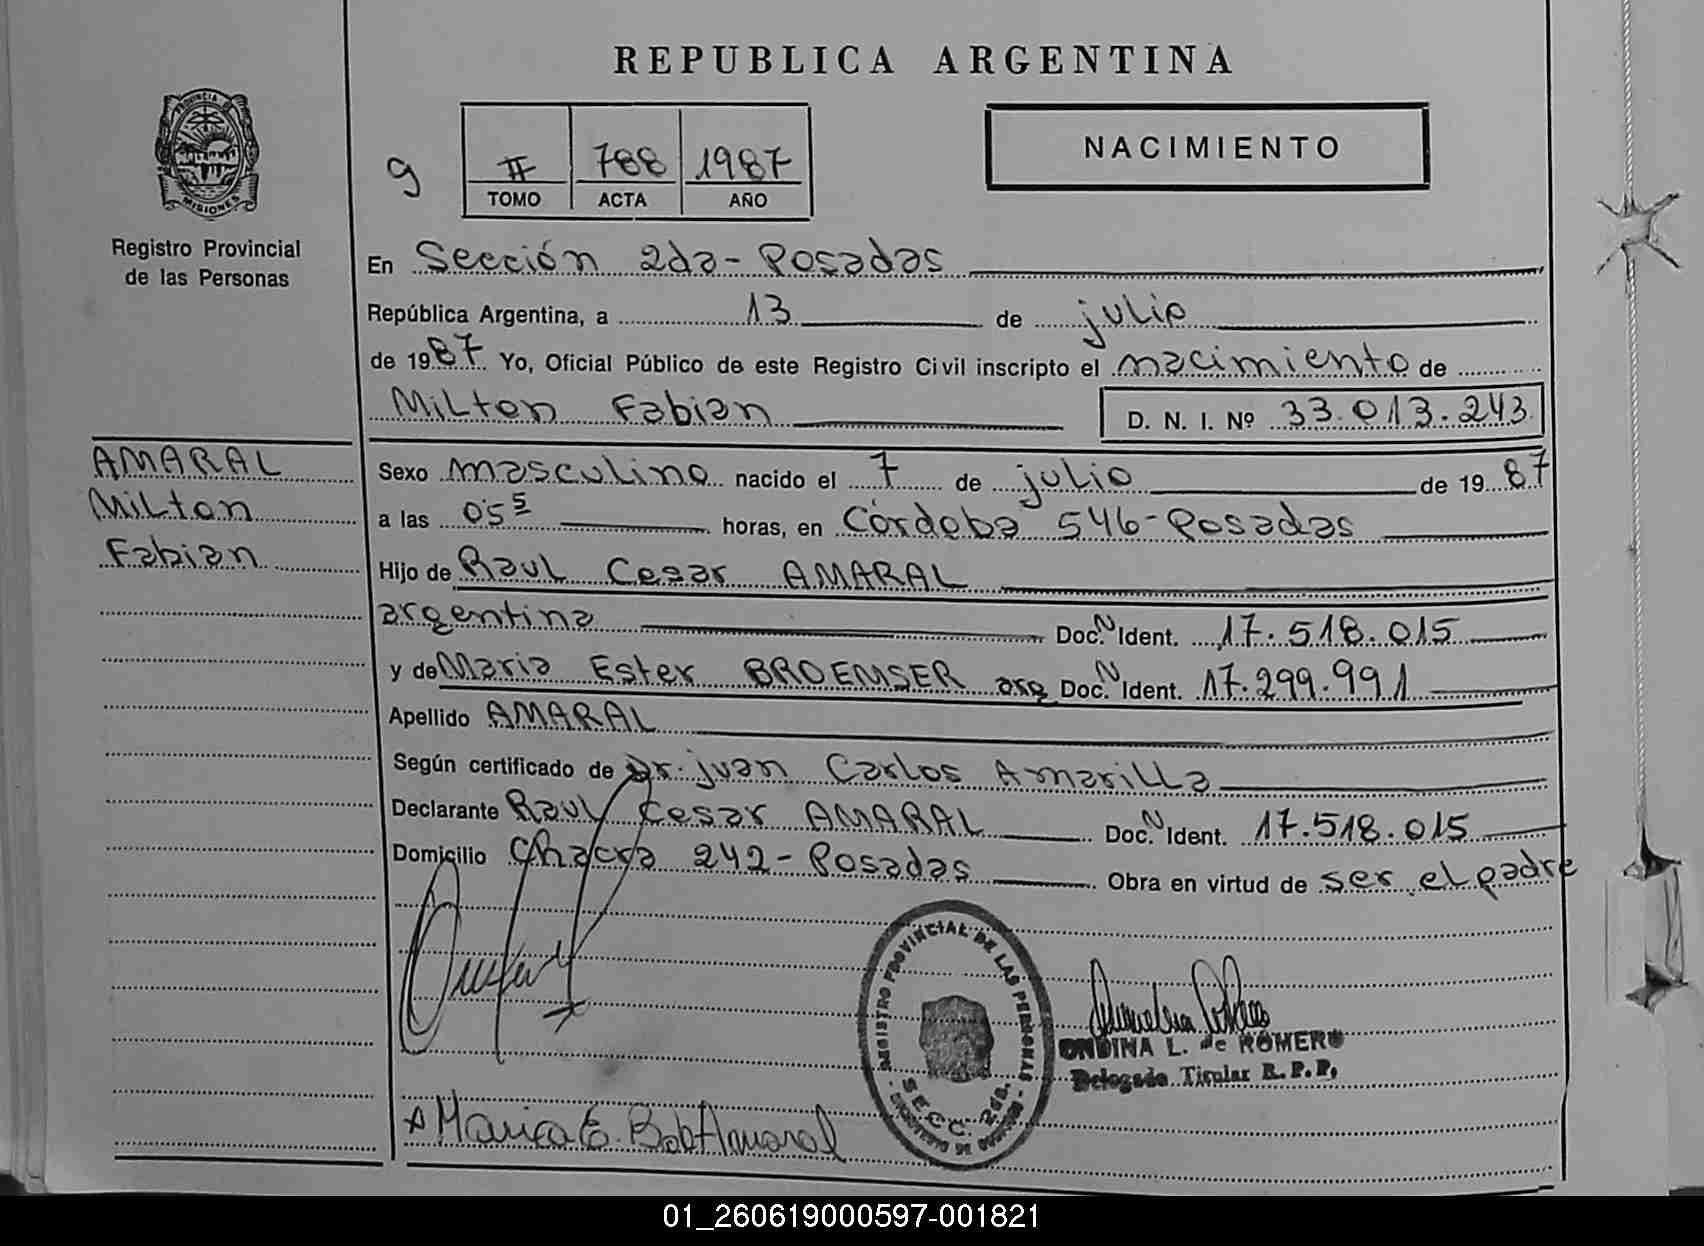 REPUBLICA ARGENTINA
PROVINCIA DE
MISIONES
Registro Provincial
de las Personas
9
II 788 1987
TOMO ACTA AÑO
NACIMIENTO
En Sección 2da - Posadas
República Argentina, a 13 de julio
de 1987 Yo, Oficial Público de este Registro Civil inscripto el nacimiento de
Milton Fabian D. N. I. Nº 33.013.243
AMARAL
Milton
Fabian
Sexo masculino nacido el 7 de julio de 1987
a las 05⁵ horas, en Córdoba 546 - Posadas
Hijo de Raul Cesar AMARAL
argentina Doc. N Ident. 17.518.015
y de Maria Ester BROEMSER arg Doc. N Ident. 17.299.991
Apellido AMARAL
Según certificado de Dr. Juan Carlos Amarilla
Declarante Raul Cesar AMARAL Doc. N Ident. 17.518.015
Domicilio Chacra 242 - Posadas Obra en virtud de ser el padre
REGISTRO PROVINCIAL DE LAS PERSONAS
SECC. 2da.
ONDINA L. de ROMERO
Delegado Titular R. P. P.
01_260619000597-001821